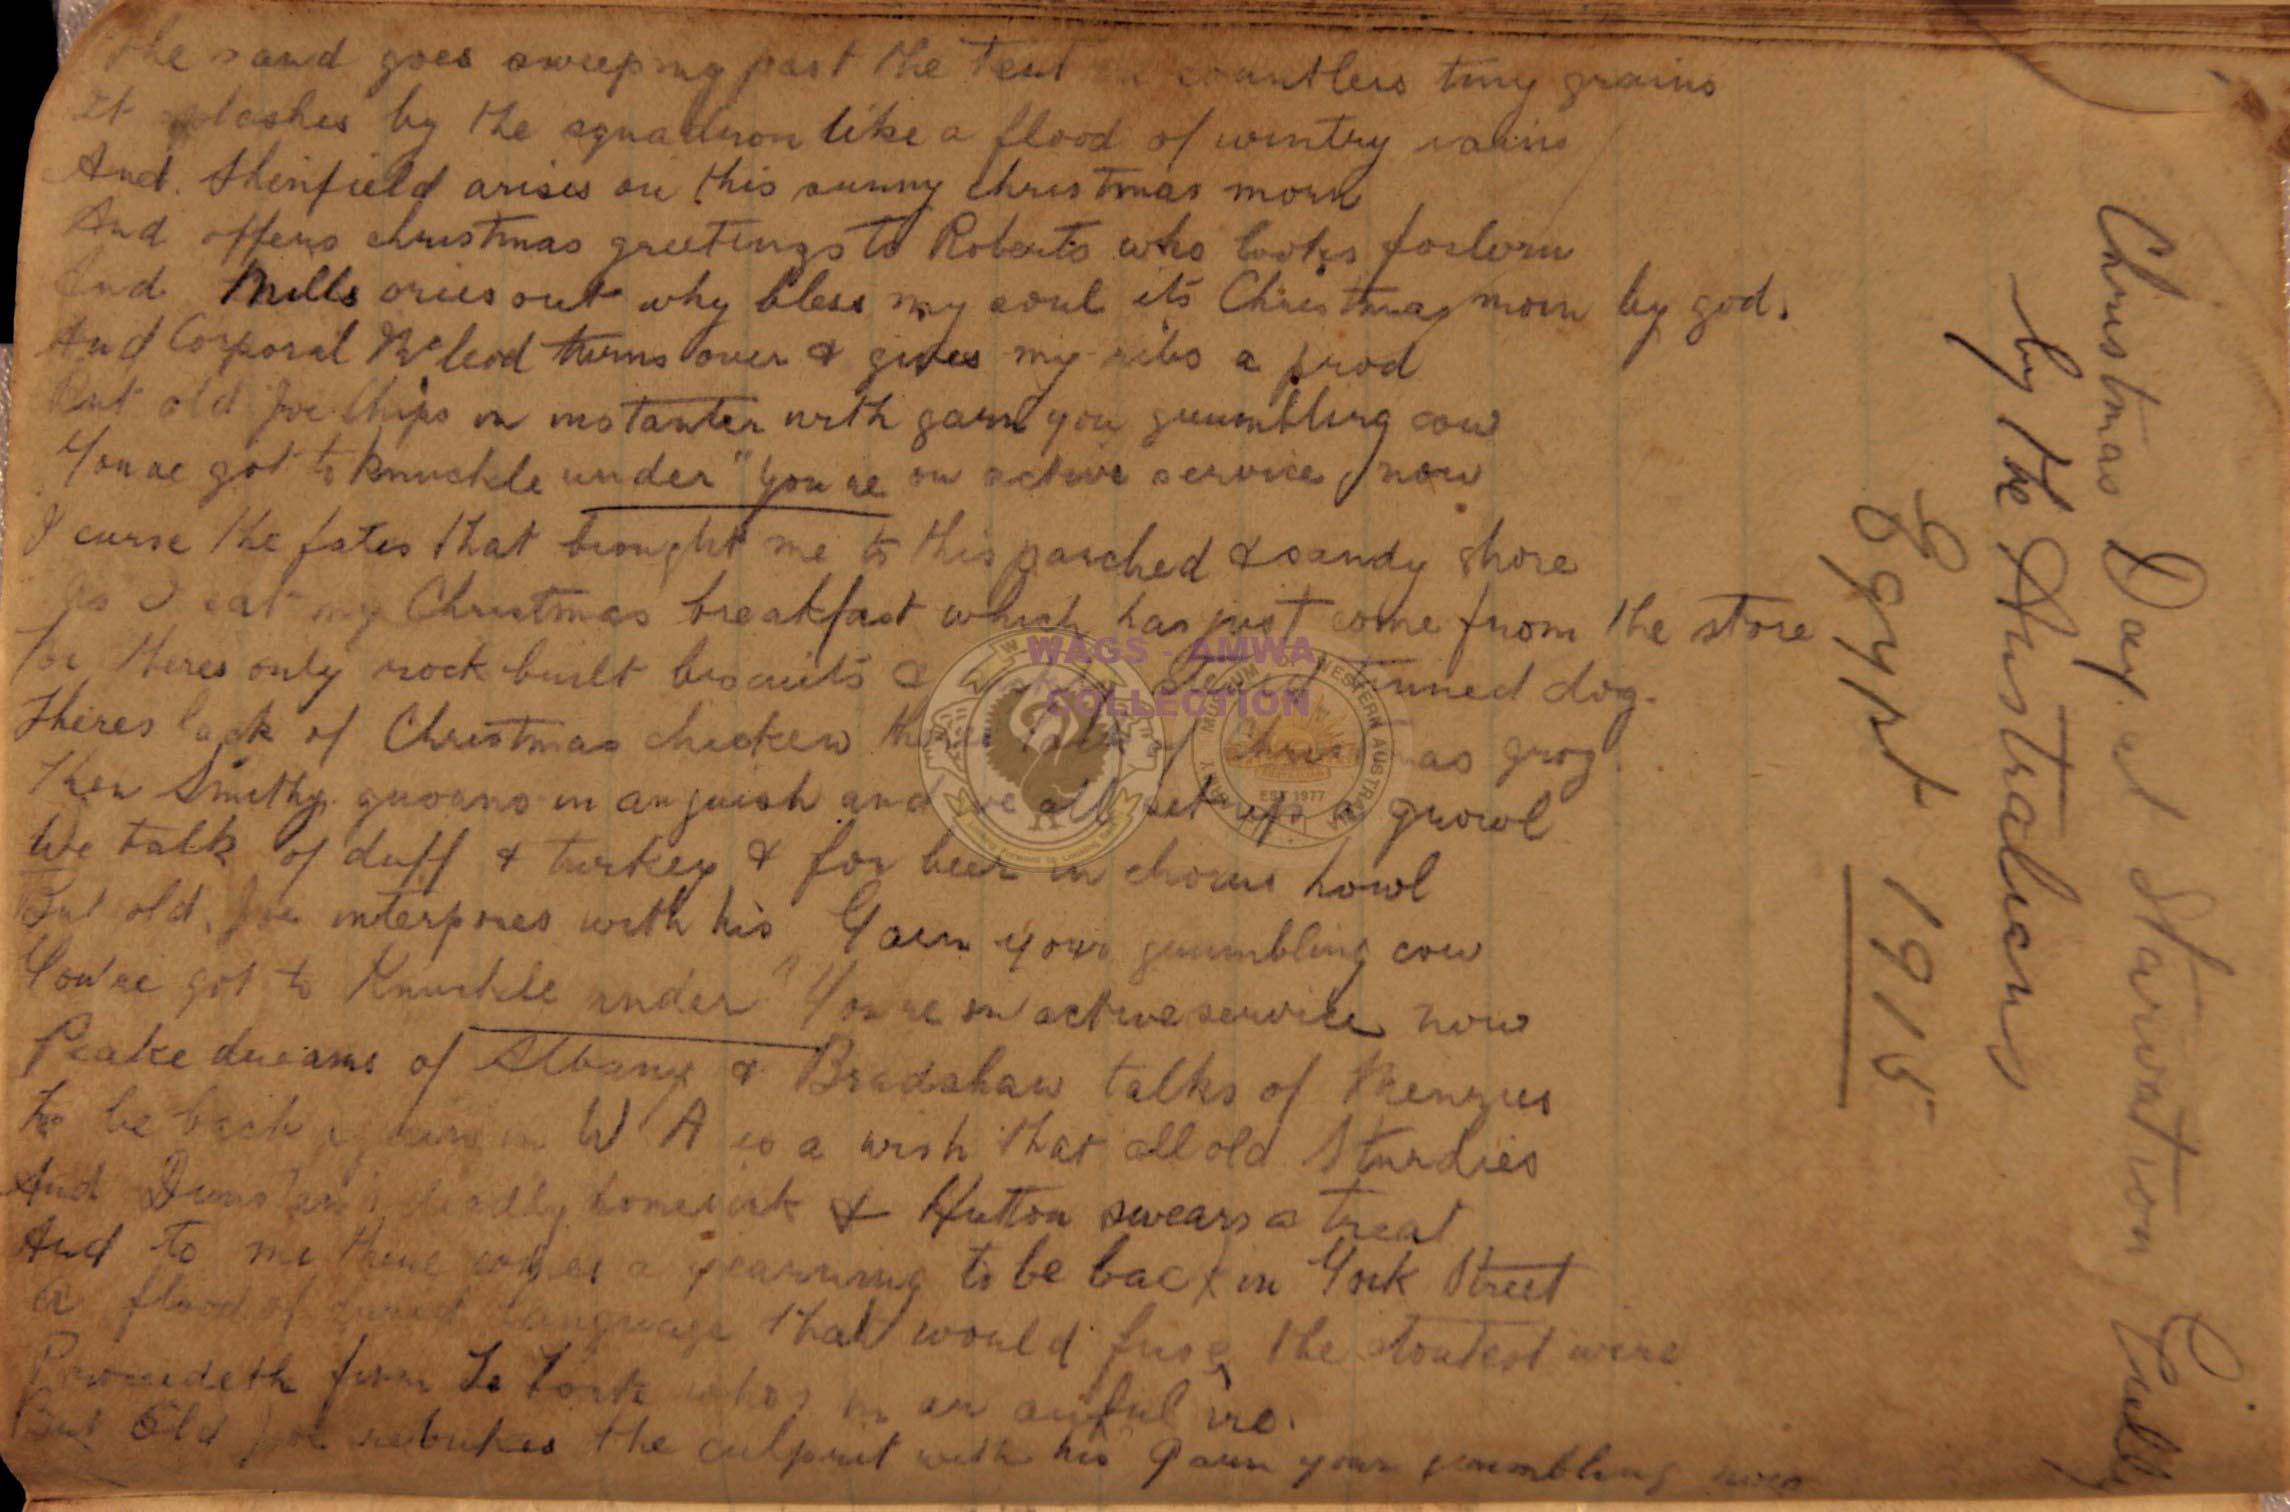 Christmas Day at Starvation Gully
by the Australians
Egypt 1915
The sand goes sweeping past the tent in countless tiny grains
It splashes by the squadron like a flood of wintry rains
And Shinfield arises on this sunny christmas morn
And offers christmas greetings to Roberts who looks forlorn
And Mills cries out why bless my soul its Christmas morn by god.
And Corporal McLeod turns over & gives my ribs a prod
But old Joe chips in instanter with garn you grumbling cow
You've got to knuckle under" You're on active service now
I curse the fates that brought me to this parched & sandy shore
As I eat my Christmas breakfast which has just come from the store
For theres only rock built biscuits & tinned dog.
Theres lack of Christmas chicken theres lack of Christmas grog
Then Smithy groans in anguish and we all set up a growl
We talk of duff & turkey & for beer in chorus howl
But old Joe interposes with his Garn your grumbling cow
You've got to Knuckle under" You're on active service now
Peake dreams of Albany & Bradshaw talks of Menzies
To be back again in W A is a wish that all old Sturdies
And Dunstan's deadly homesick & Hutton swears a treat
And to me there comes a yearning to be back in York Street
A flood of lurid language that would fuse the stoutest wire
Proceedeth from La whos in an awful ire.
But Old Joe rebukes the culprit with his Garn your grumbling cow
WAGS - AMWA
COLLECTION
EST 1977